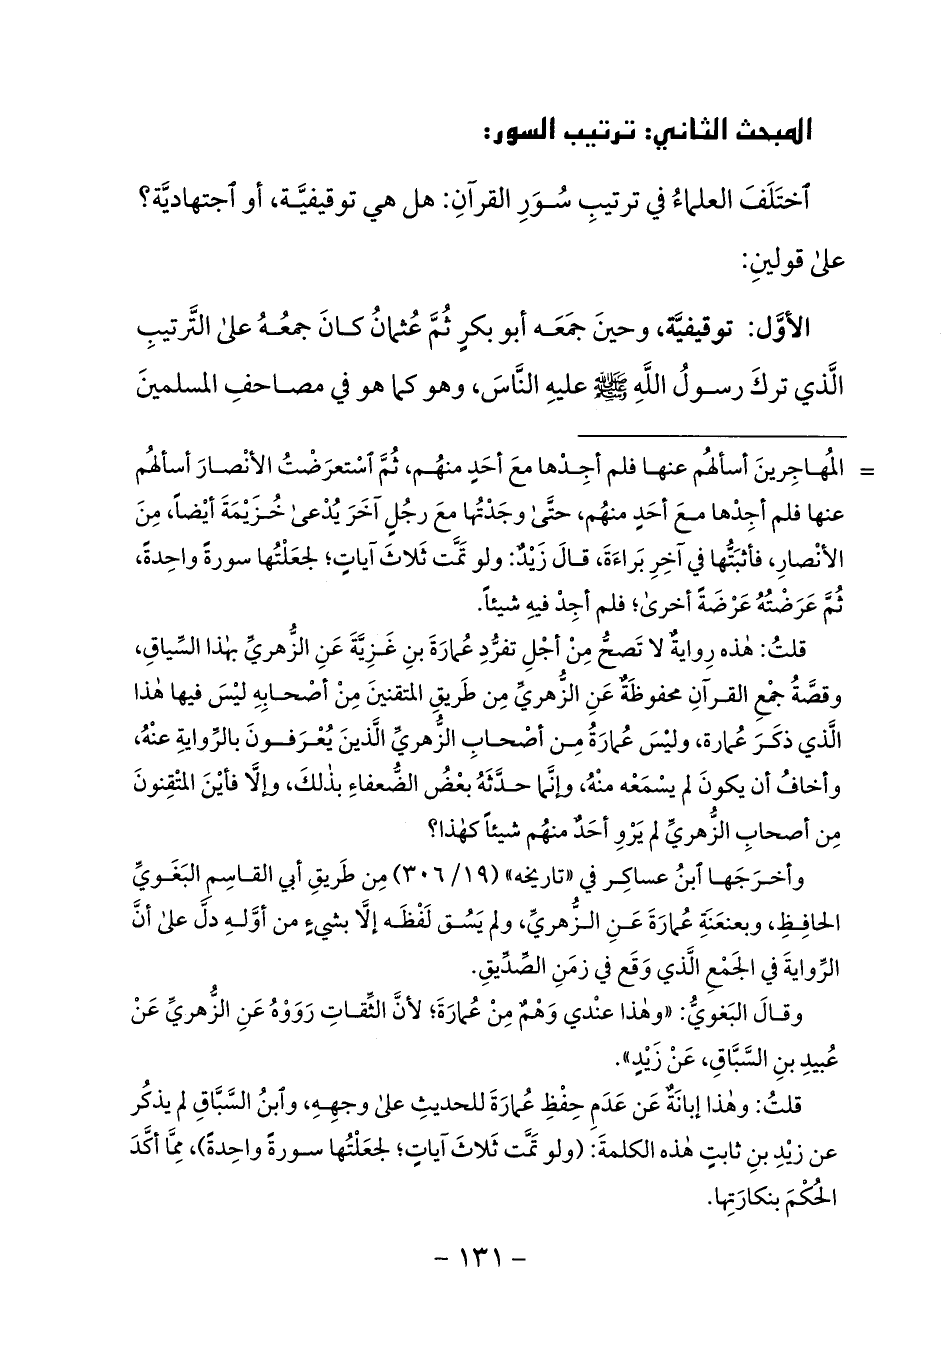 المبحث الثاني: ترتيب السور:
ٱختَلَفَ العلماءُ في ترتيبِ سُوَرِ القرآنِ: هل هي توقيفيَّة، أو ٱجتهاديَّة؟
علىٰ قولينِ:
الأوَّل: توقيفيَّة، وحينَ جمَعَه أبو بكرٍ ثُمَّ عُثمانُ كانَ جمعُهُ علىٰ التَّرتيبِ
الَّذي تركَ رسولُ اللَّهِ ﷺ عليهِ النَّاسَ، وهو كما هو في مصاحفِ المسلمينَ
= المُهاجِرينَ أسألهُم عنها فلم أجِدْها معَ أحَدٍ منهُم، ثُمَّ ٱسْتعرَضْتُ الأنْصارَ أسألهُم
عنها فلم أجِدْها مـعَ أحَدٍ منهُم، حتَّىٰ وجَدْتُها معَ رجُلٍ آخَرَ يُدْعىٰ خُزَيْمَةَ أيْضاً، مِنَ
الأنْصارِ، فأثبَتُّها في آخِرِ بَراءَةَ، قالَ زَيْدٌ: ولو تمَّت ثَلاثَ آياتٍ؛ لجعَلْتُها سورةً واحِدةً،
ثُمَّ عَرَضْتُهُ عَرْضَةً أخرىٰ؛ فلم أجِدْ فيهِ شيئاً.
قلتُ: هٰذه رِوايةٌ لا تَصحُّ مِنْ أجْلِ تفرُّدِ عُمارَةَ بنِ غَزِيَّةَ عَنِ الزُّهريِّ بهٰذا السِّياقِ،
وقصَّةُ جمْعِ القرآنِ محفوظَةٌ عَنِ الزُّهريِّ مِن طَريقِ المتقنينَ مِنْ أصْحابِهِ ليْسَ فيها هٰذا
الَّذي ذكَرَ عُمارة، وليْسَ عُمارَةُ مِن أصْحابِ الزُّهريِّ الَّذينَ يُعْرَفونَ بالرِّوايةِ عنْهُ،
وأخافُ أن يكونَ لم يسْمَعْه منْهُ، وإنَّما حدَّثَهُ بعْضُ الضُّعفاءِ بذٰلكَ، وإلَّا فأيْنَ المتْقِنونَ
مِن أصحابِ الزُّهريِّ لم يَرْوِ أحَدٌ منهُم شيئاً كهٰذا؟
وأخرَجَها ٱبنُ عساكِر في «تاريخه» (١٩/ ٣٠٦) مِن طَريقِ أبي القاسِمِ البَغَويِّ
الحافِظِ، وبعنعَنَةِ عُمارَةَ عَنِ الزُّهريِّ، ولم يَسُق لَفْظَه إلَّا بشيءٍ من أوَّلهِ دلَّ علىٰ أنَّ
الرِّوايةَ في الجَمْعِ الَّذي وَقَع في زمَنِ الصِّدِّيقِ.
وقالَ البَغويُّ: «وهٰذا عنْدي وَهْمٌ مِنْ عُمارَةَ؛ لأنَّ الثِّقاتِ رَوَوْهُ عَنِ الزُّهريِّ عَنْ
عُبيدِ بنِ السَّبَّاقِ، عَنْ زَيْدٍ».
قلتُ: وهٰذا إبانَةٌ عَن عَدَمِ حِفْظِ عُمارَةَ للحديثِ علىٰ وجهِهِ، وٱبنُ السَّبَّاقِ لم يذكُر
عن زيْدِ بنِ ثابتٍ هٰذه الكلمةَ: (ولو تمَّت ثَلاثَ آياتٍ؛ لجعَلْتُها سورةً واحِدةً)، ممَّا أكَّدَ
الحُكْمَ بنكارَتِها.
- ١٣١ -